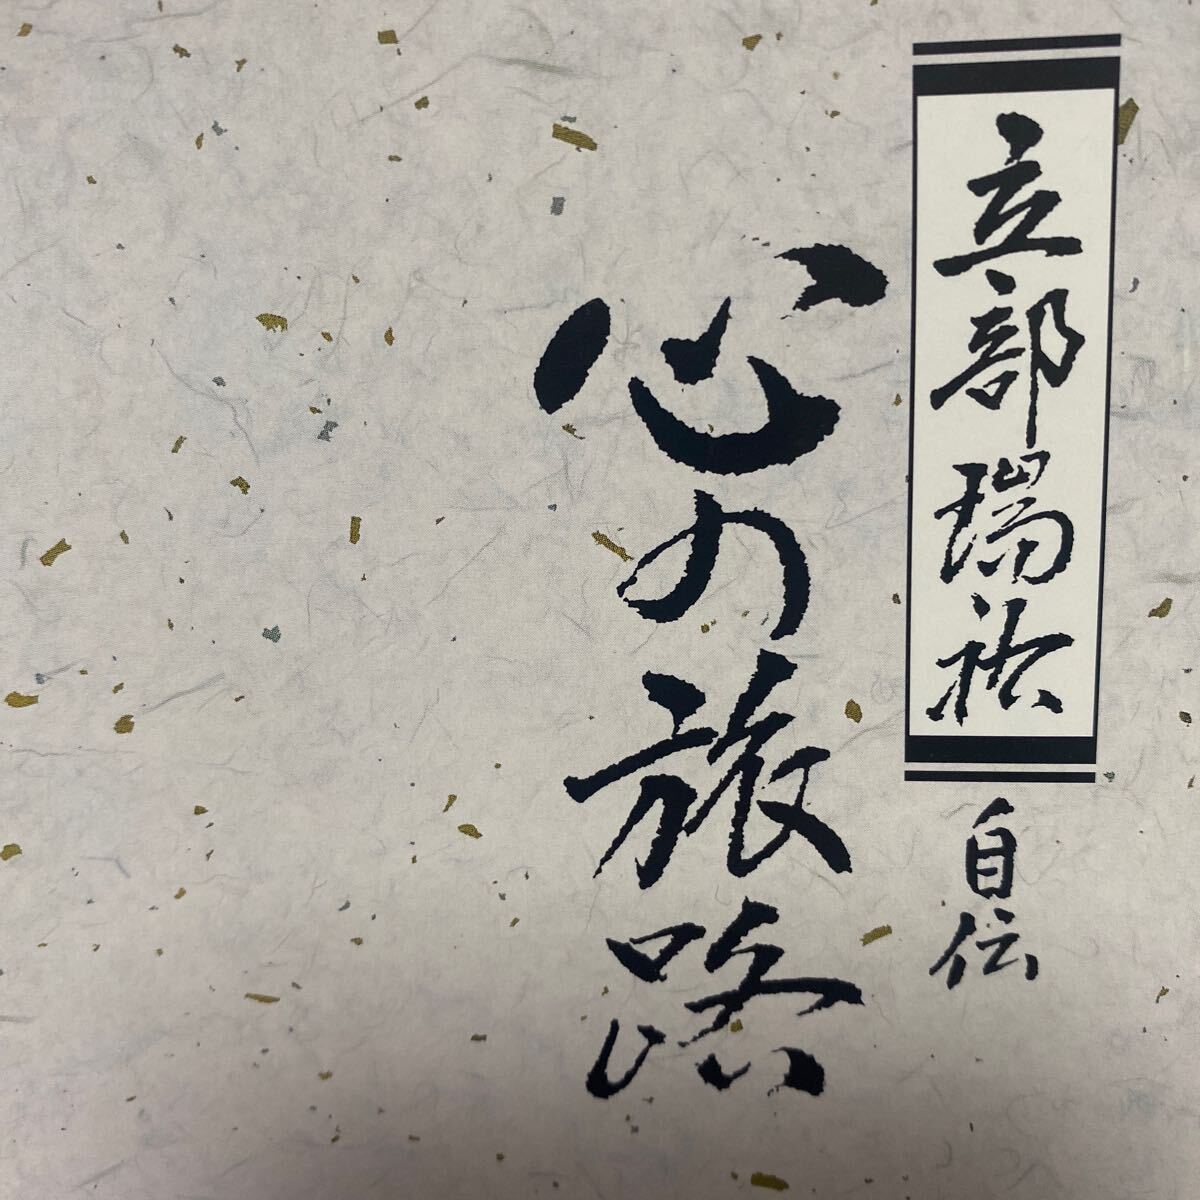 立部瑞祐
自伝
心の旅路